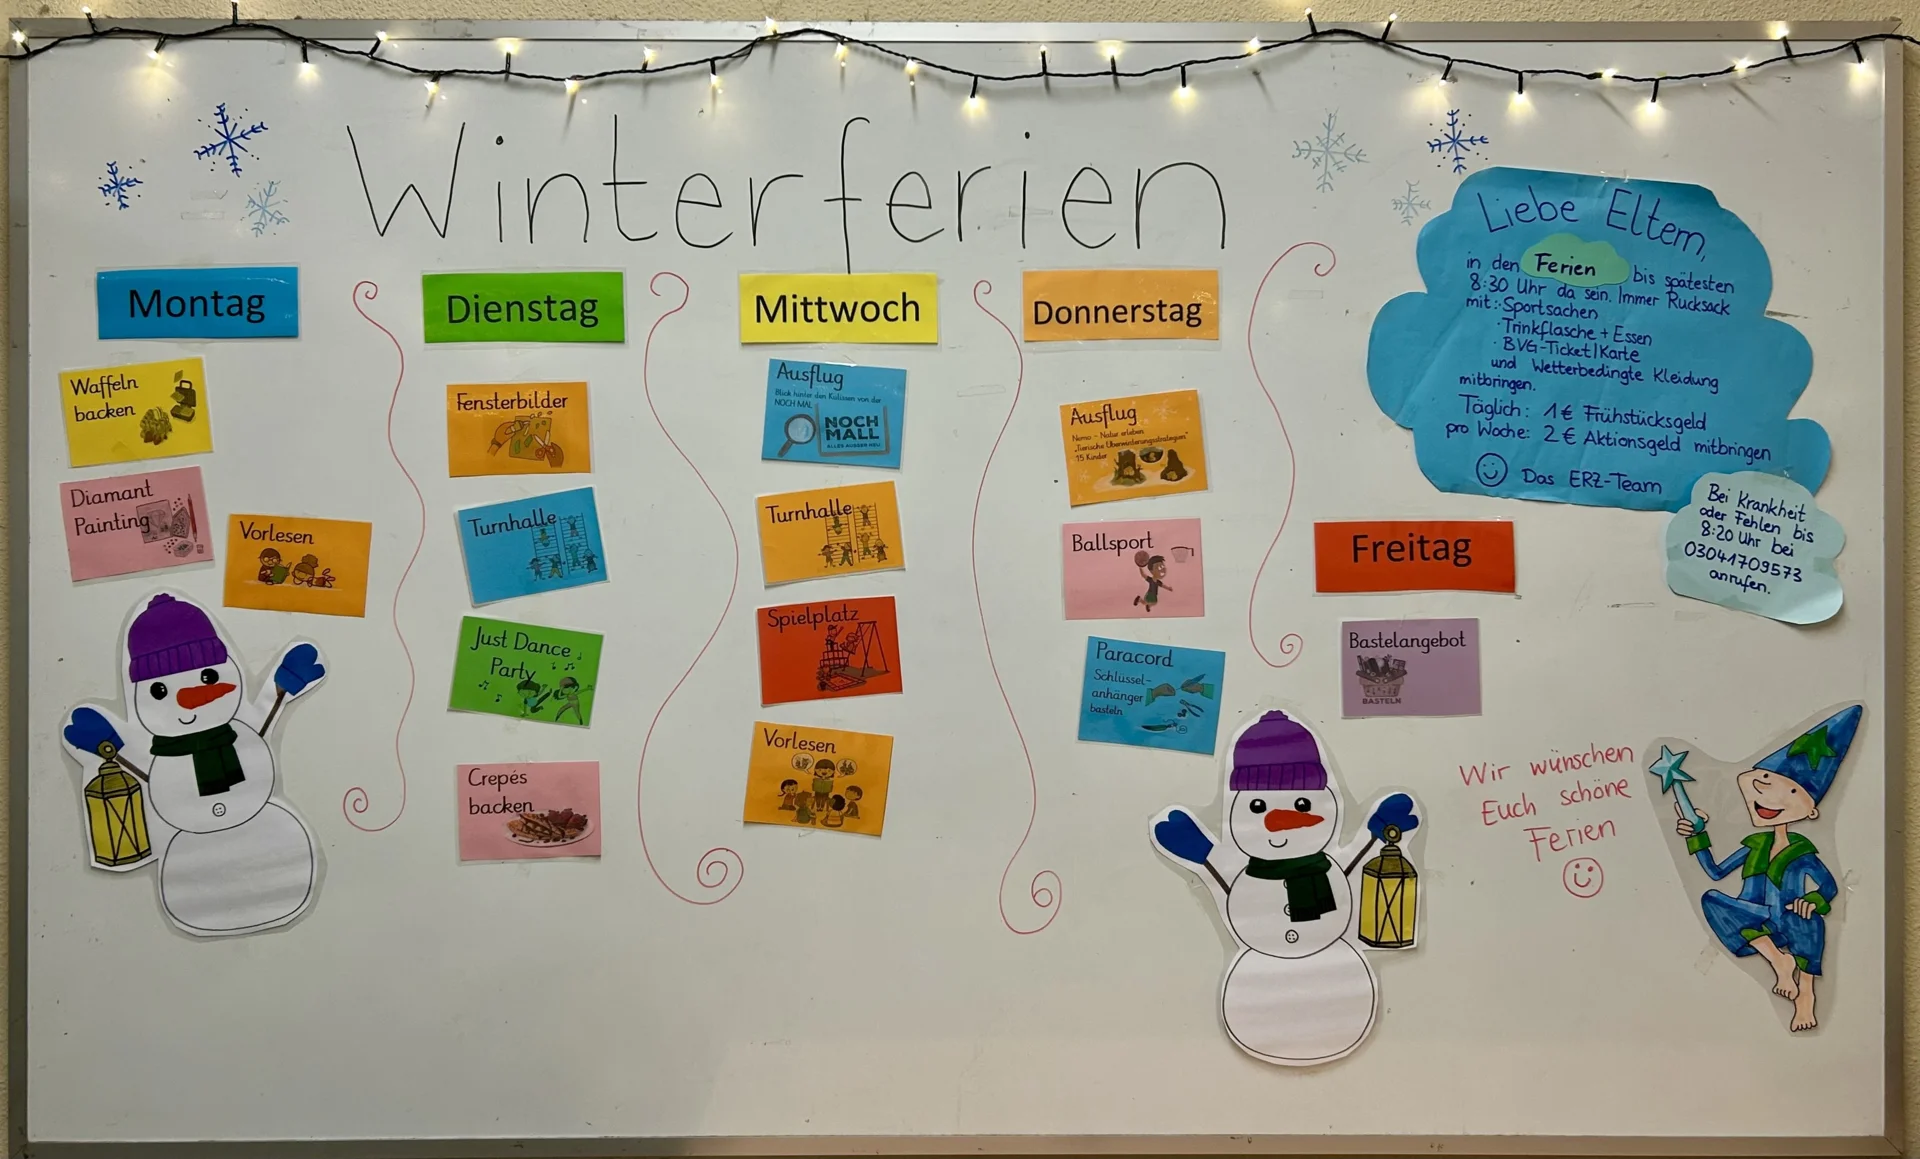 Winterferien
Montag
Waffeln
backen
Diamant
Painting
Vorlesen
Dienstag
Fensterbilder
Turnhalle
Just Dance
Party
Crepés
backen
Mittwoch
Ausflug
Blick hinter den Kulissen von der
NOCH MAL
NOCH
MALL
ALLES AUSSER NEU
Turnhalle
Spielplatz
Vorlesen
Donnerstag
Ausflug
Nemo - Natur erleben
„Tierische Überwinterungsstrategien"
15 Kinder
Ballsport
Paracord
Schlüssel-
anhänger
basteln
Freitag
Bastelangebot
BASTELN
Liebe Eltern,
in den Ferien bis spätesten
8:30 Uhr da sein. Immer Rucksack
mit: · Sportsachen
· Trinkflasche + Essen
· BVG-Ticket/Karte
und Wetterbedingte Kleidung
mitbringen.
Täglich: 1€ Frühstücksgeld
pro Woche: 2€ Aktionsgeld mitbringen
Das ERZ-Team
Bei Krankheit
oder Fehlen bis
8:20 Uhr bei
03041709573
anrufen.
Wir wünschen
Euch schöne
Ferien